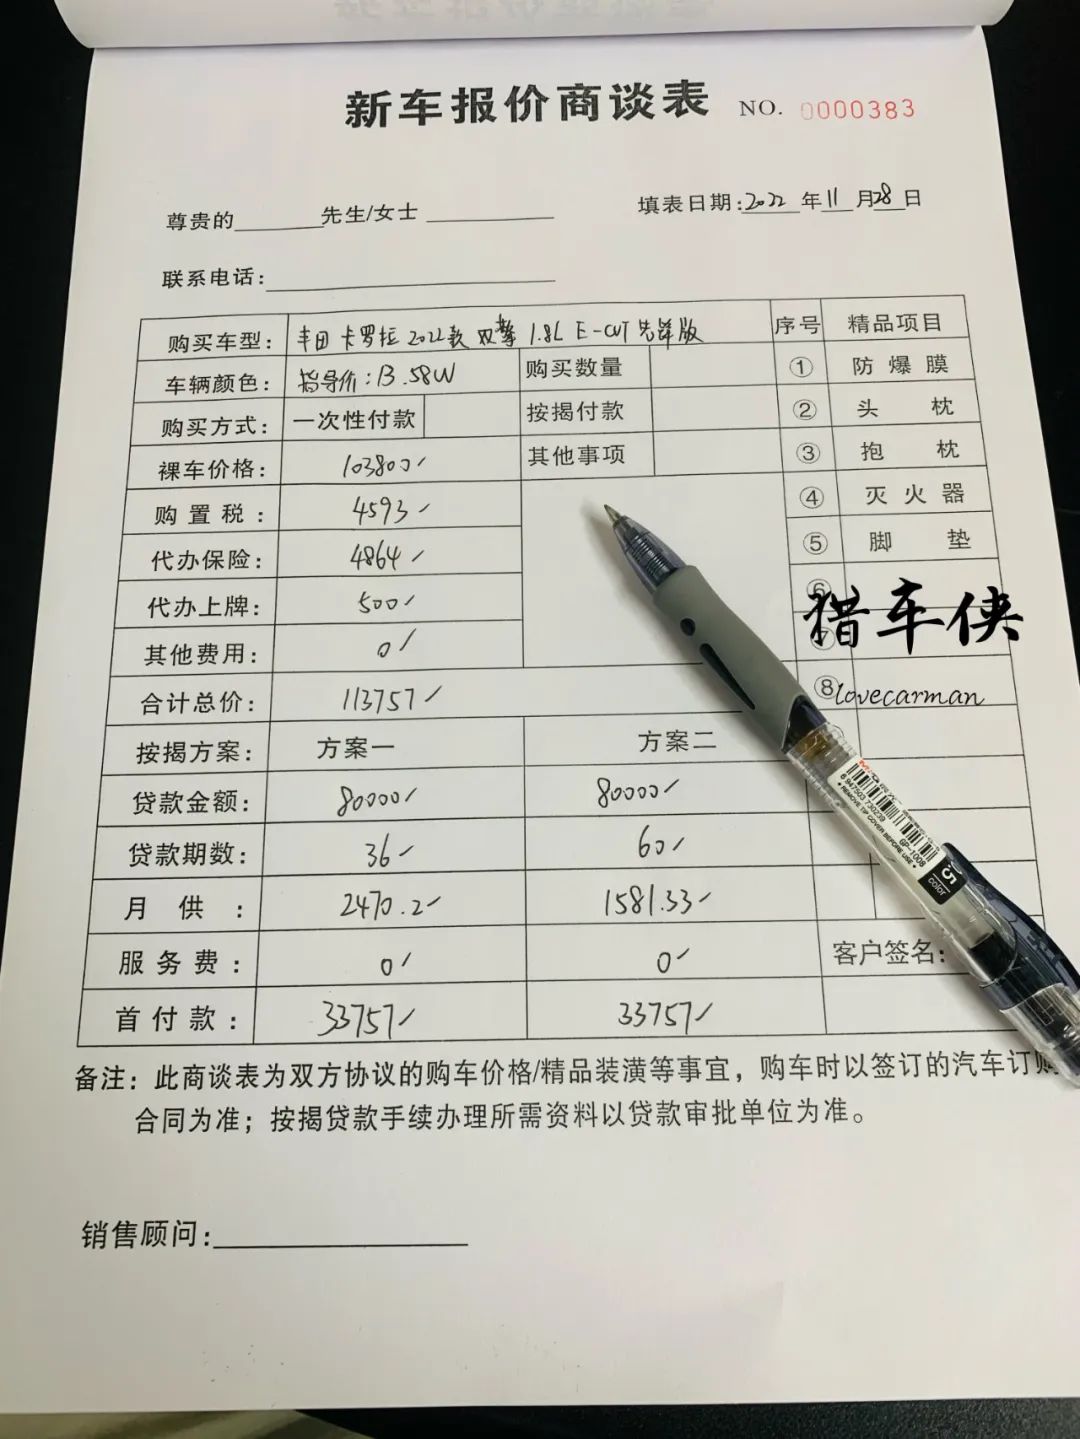 新车报价商谈表 NO. 0000383
尊贵的 先生/女士 填表日期:2022年11月28日
联系电话:
购买车型: 丰田 卡罗拉 2022款 双擎 1.8L E-CVT 先锋版 序号 精品项目
车辆颜色: 指导价:13.58W 购买数量 ① 防爆膜
购买方式: 一次性付款 按揭付款 ② 头枕
裸车价格: 103800 其他事项 ③ 抱枕
购置税: 4593 ④ 灭火器
代办保险: 4864 ⑤ 脚垫
代办上牌: 500 ⑥
猎车侠
其他费用: 0
合计总价: 113757 ⑧
lovecarman
按揭方案: 方案一 方案二
贷款金额: 80000 80000
贷款期数: 36 60
月供: 2470.2 1581.33
服务费: 0 0 客户签名:
首付款: 33757 33757
6 947503 730239
REMOVE TIP COVER BEFORE USE
GP-1008
.5
color
备注:此商谈表为双方协议的购车价格/精品装潢等事宜,购车时以签订的汽车订购
合同为准;按揭贷款手续办理所需资料以贷款审批单位为准。
销售顾问: